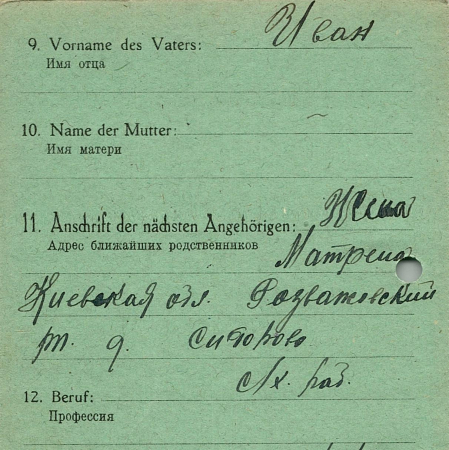 9. Vorname des Vaters: Иван
Имя отца
10. Name der Mutter: –
Имя матери
11. Anschrift der nächsten Angehörigen: Жена
Адрес ближайших родственников Матрена
Киевская обл. Розважовский
д. Сидорово
с/х. раб.
12. Beruf:
Профессия